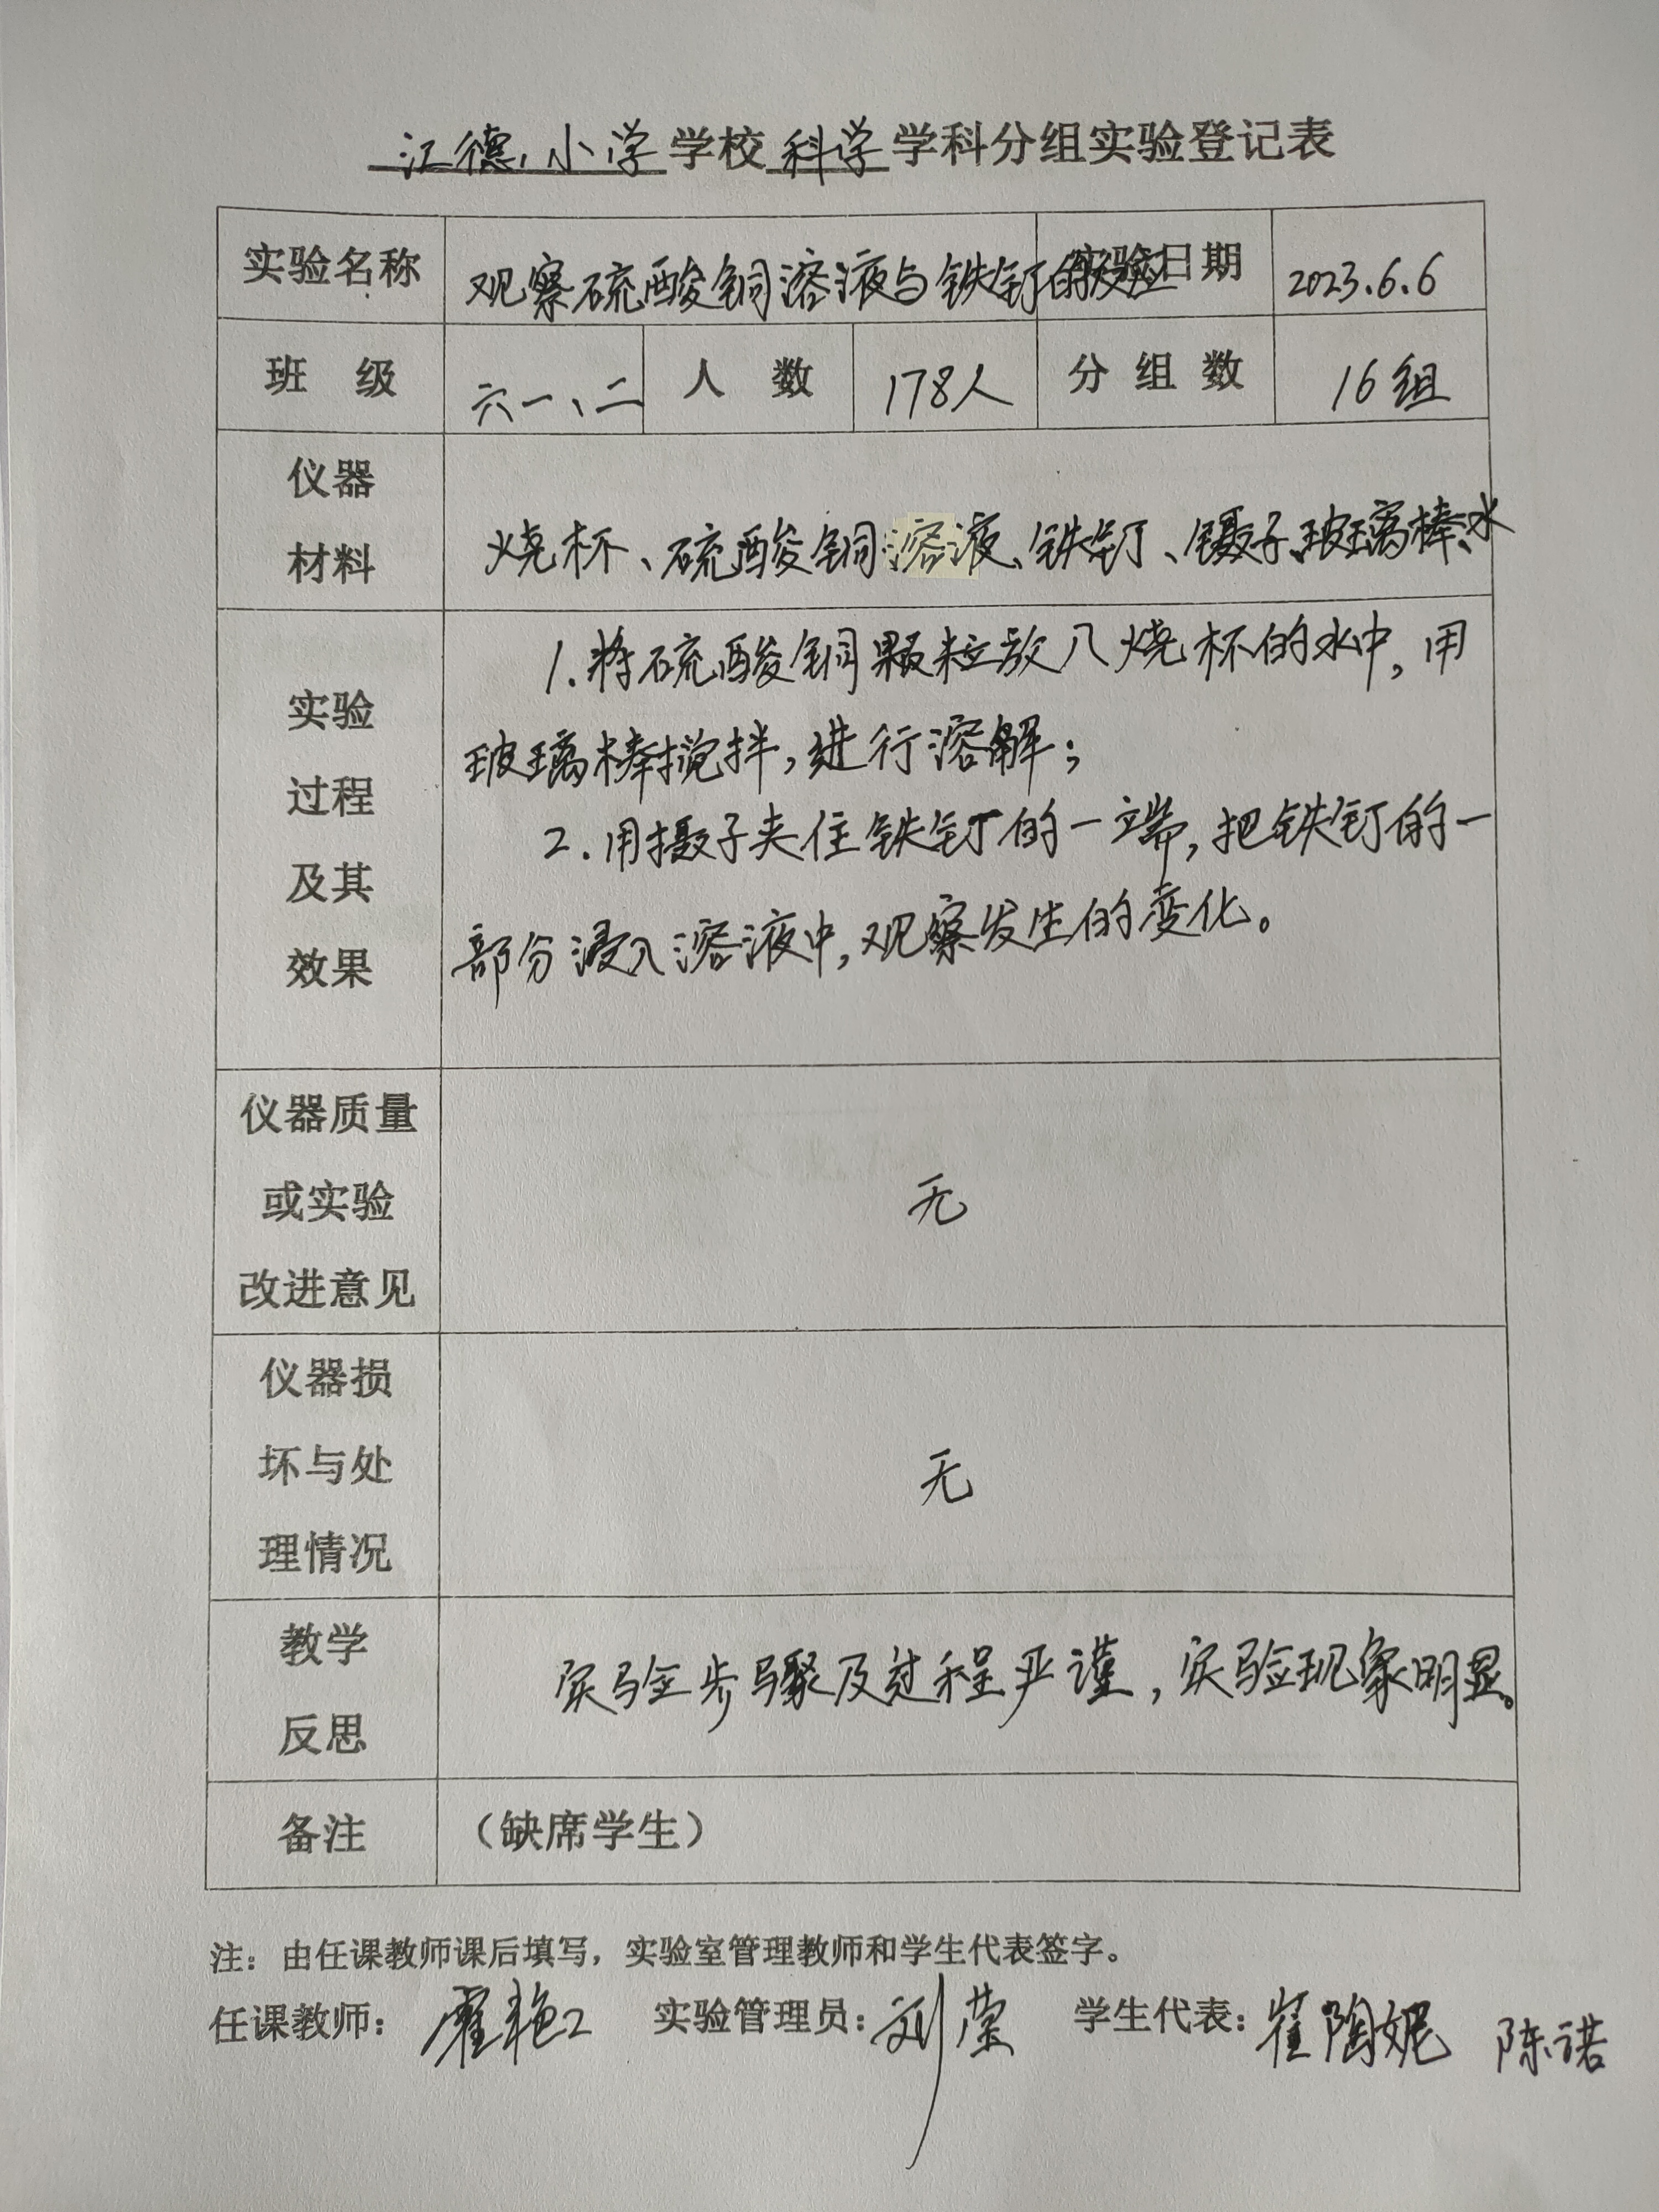 江德小学学校科学学科分组实验登记表
实验名称 观察硫酸铜溶液与铁钉的反应 实验日期 2023.6.6
班 级 六一、二 人 数 178人 分 组 数 16组
仪器
材料
烧杯、硫酸铜溶液、铁钉、镊子、玻璃棒、水
实验
过程
及其
效果
1.将硫酸铜颗粒放入烧杯的水中,用
玻璃棒搅拌,进行溶解;
2.用摄子夹住铁钉的一端,把铁钉的一
部分浸入溶液中,观察发生的变化。
仪器质量
或实验
改进意见
无
仪器损
坏与处
理情况
无
教学
反思
实验步骤及过程严谨,实验现象明显。
备注 (缺席学生)
注:由任课教师课后填写,实验室管理教师和学生代表签字。
任课教师: 霍艳 实验管理员: 刘莹 学生代表: 崔陶妮 陈诺